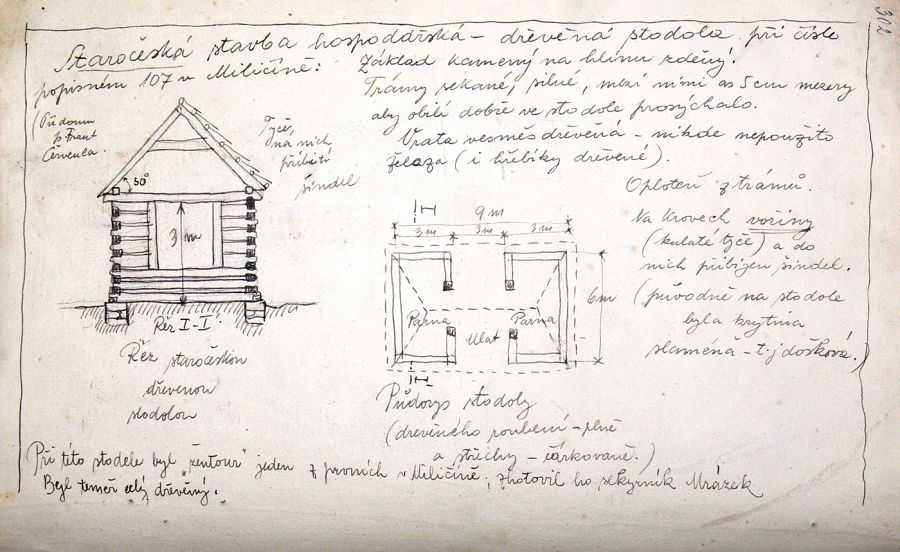 302
Staročeská stavba hospodářská - dřevěná stodola při čísle
popisném 107 v Miličíně:
Základ kamenný na hlínu zděný.
Trámy sekané, silné, mezi nimi as 5 cm mezery
aby obilí dobře ve stodole prosýchalo.
Vrata vesměs dřevěná - nikde nepoužito
železa (i hřebíky dřevěné).
Při domu
p. Frant
Červenla.
Tyče,
na nich
přibití
šindel
50°
3 m
Řez I-I
Řez staročeskou
dřevěnou
stodolou
I
9 m
3 m 3 m 3 m
6 m
Parna Mlat Parna
I
Půdorys stodoly
(dřevěného roubení - plně
a střechy - čárkovaně.)
Oplotení z trámů.
Na krovech vořiny
(kulaté tyče) a do
nich přibíjen šindel.
(původně na stodole
byla krytina
slaměná - t.j došková.)
Při této stodole byl „žentour" jeden z prvních v Miličíně; zhotovil ho sekyrník Mrázek
Byl teměř celý dřevěný.